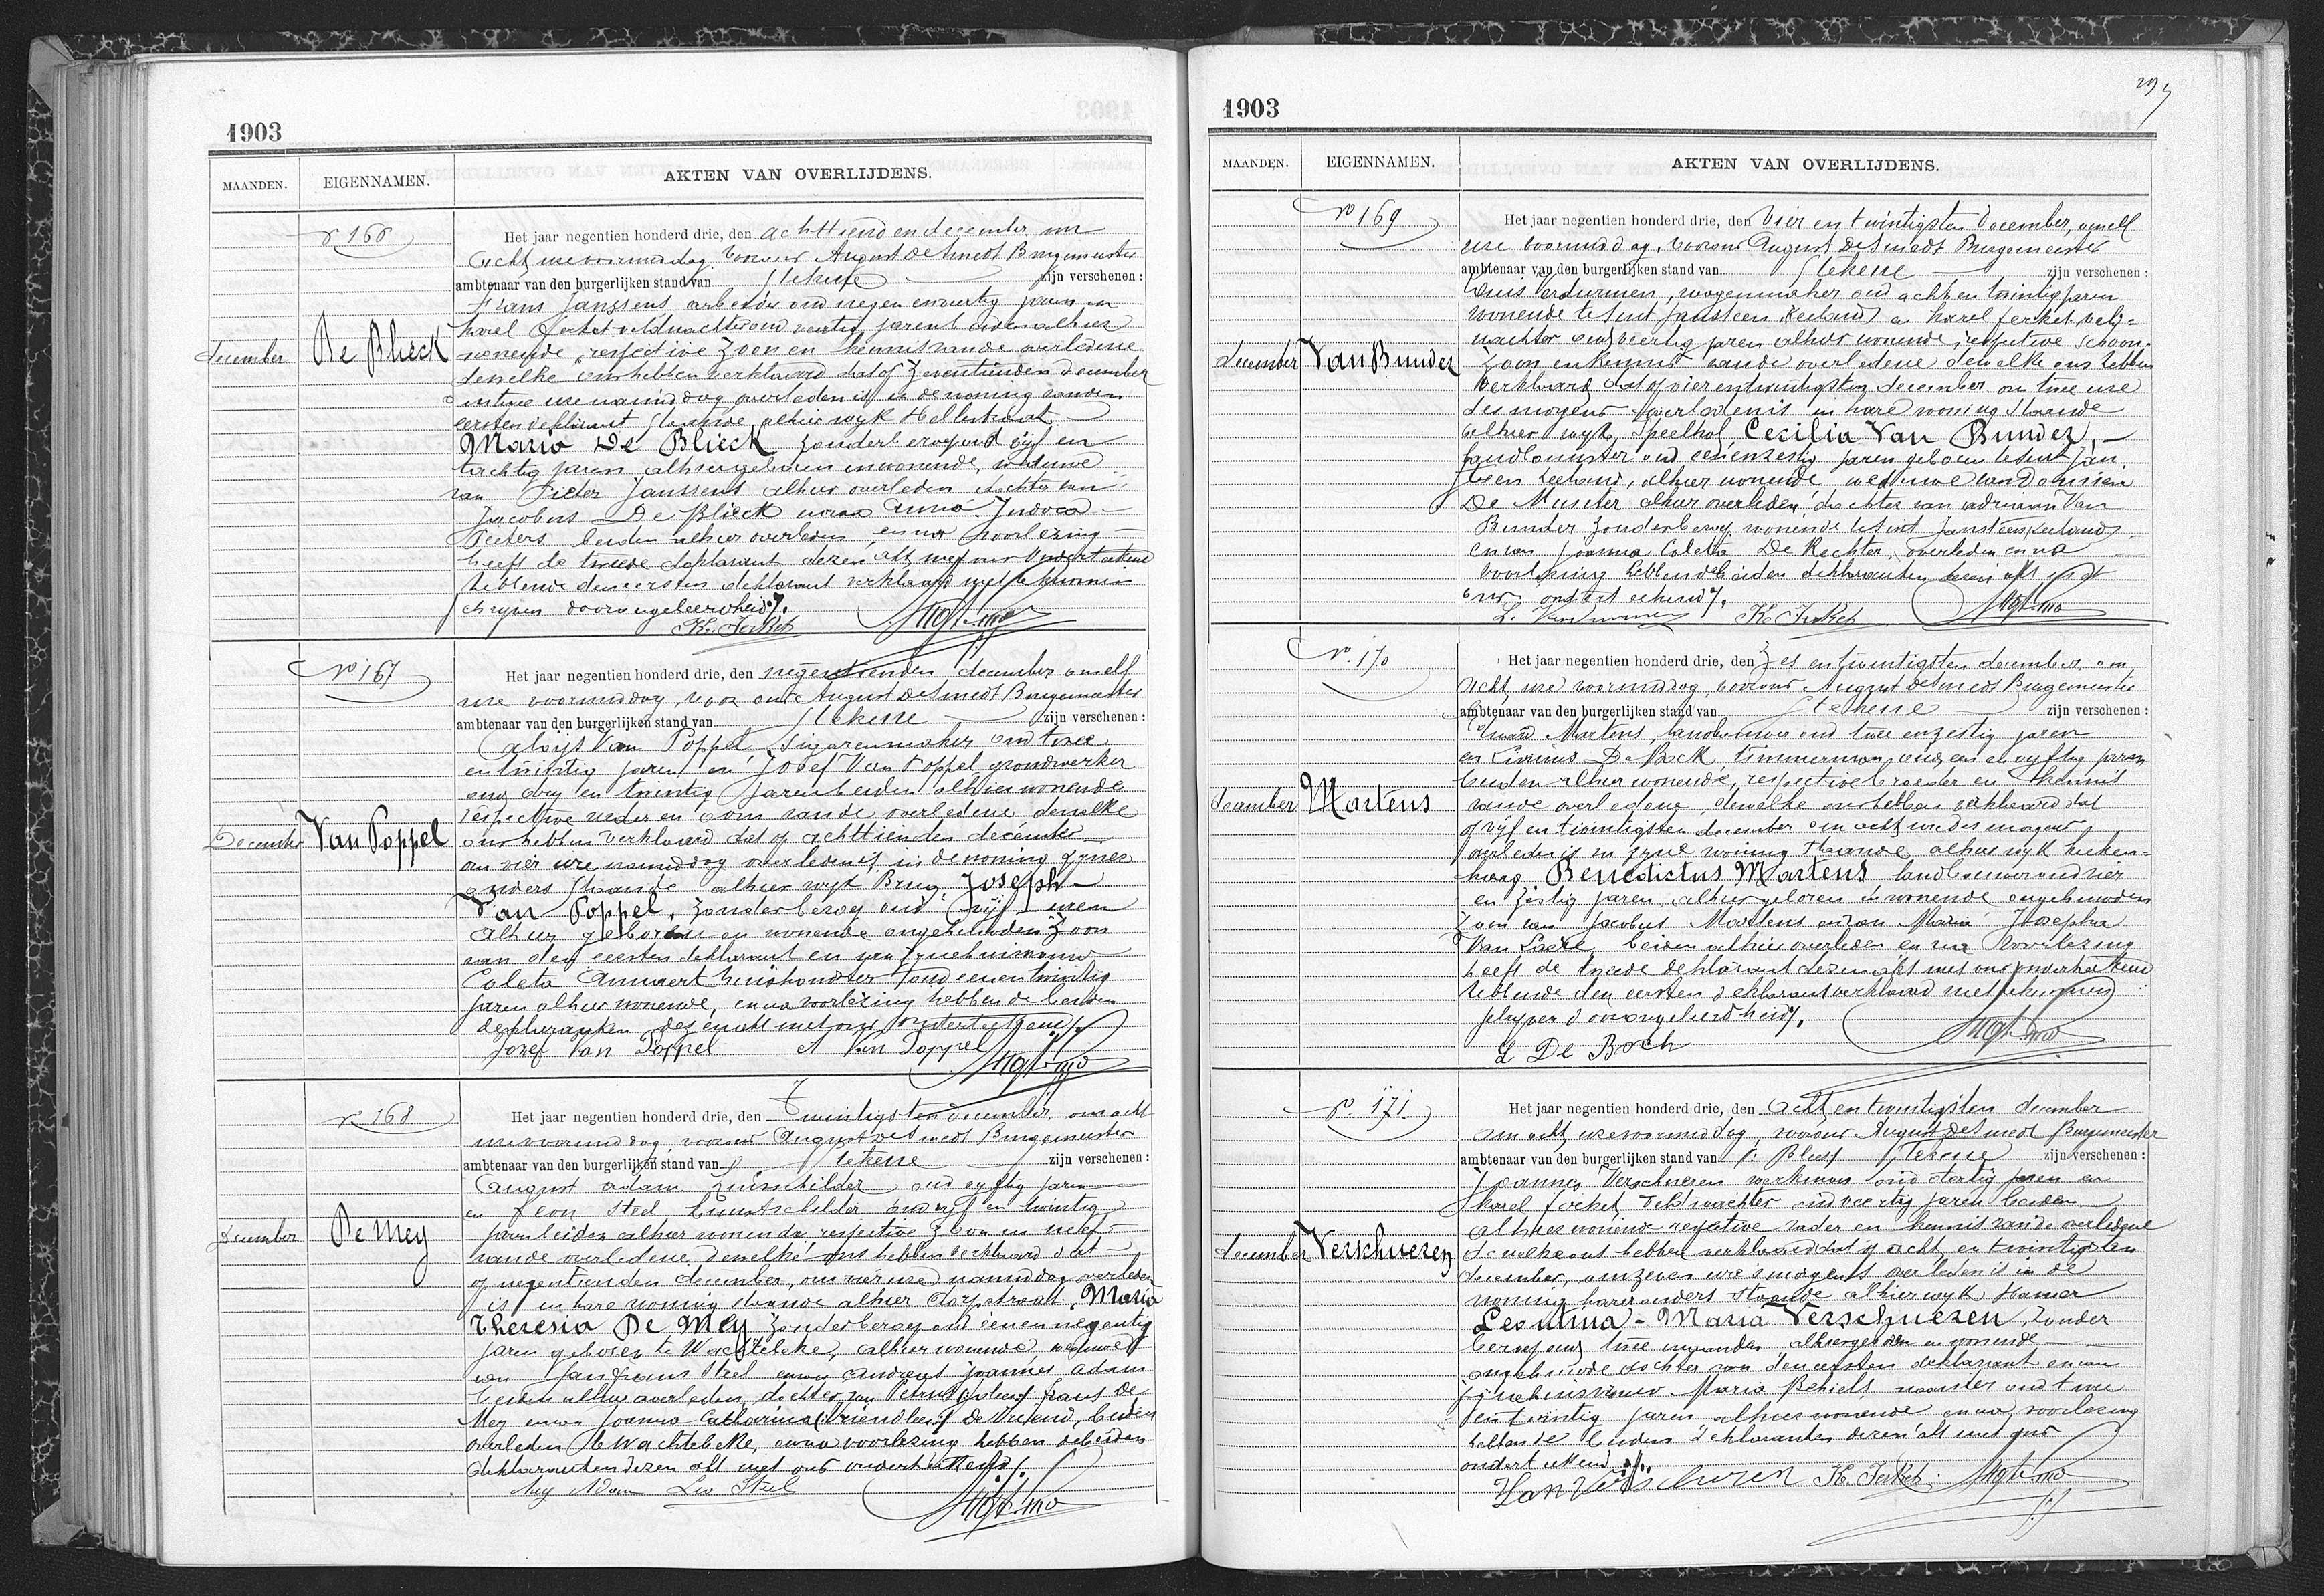 1903
MAANDEN. EIGENNAMEN. AKTEN VAN OVERLIJDENS.
december
De Blieck
Het jaar negentien honderd drie, den achttienden december, om
acht ure voormiddag, voor ons August De Smedt Burgemeester
ambtenaar van den burgerlijken stand van Stekene zijn verschenen :
Frans Janssens, arbeider oud negen en veertig jaren en
Karel Ferket veldwachter oud veertig jaren beiden alhier
wonende, respective zoon en kennis van de overledene
dewelke ons hebben verklaard dat op zeventienden december
namiddag overleden is in de woning van den
eersten deklarant staande alhier wijk Hellestraat
Maria De Blieck zonder beroep oud vijf en
tachtig jaren alhier geboren en wonende, weduwe
van Pieter Janssens alhier overleden dochter van
Jacobus De Blieck en van Anna Judoca
Peeters beiden alhier overleden, en na voorlezing
heeft de tweede deklarant dezen akt met ons onderteekend
hebbende den eersten deklarant verklaard niet te kunnen
schrijven door ongeleerdheid ./.
K. Ferket
No 167
December
Van Poppel
Het jaar negentien honderd drie, den negentienden december om elf
ure voormiddag, voor ons August De Smedt Burgemeester
ambtenaar van den burgerlijken stand van Stekene zijn verschenen :
Aloijs Van Poppel, sigarenmaker oud twee
en twintig jaren en Josef Van Poppel grondwerker
oud drij en twintig jaren beiden alhier wonende
respective vader en oom van de overledene dewelke
ons hebben verklaard dat op achttienden december
om vier ure namiddag overleden is, in de woning zijner
ouders staande alhier wijk Brug, Joseph
Van Poppel, zonder beroep oud vijf uren
alhier geboren en wonende ongehuwden zoon
van den eersten deklarant en van zijne huisvrouw
Coleta Annaert huishoudster oud eenen twintig
jaren alhier wonende, en na voorlezing hebben de beiden
deklaranten dezen akt met ons onderteekend ./.
Josef Van Poppel A Van Poppel
No 168
december
De Mey
Het jaar negentien honderd drie, den Twintigsten december, om acht
ure voormiddag, voor ons August De Smedt Burgemeester
ambtenaar van den burgerlijken stand van Stekene zijn verschenen :
August Adam, huisschilder, oud vyftig jaren
en Leon Steel kunstschilder oud vijf en twintig
jaren beiden alhier wonende, respective zoon en neef
van de overledene, dewelke ons hebben verklaard dat
op negentienden december, om vier ure namiddag overleden
is in hare woning staande alhier dorpstraat, Maria
Theresia De Mey zonder beroep oud eenen negentig
jaren geboren te Wachtebeke, alhier wonende weduwe
van Jan Frans Steel en van Andreas Joannes Adam
beiden alhier overleden, dochter van Petrus Frans De
Mey en van Joanna Catharina De Vriend, beiden
overleden te Wachtebeke, en na voorlezing hebben de beiden
deklaranten dezen akt met ons onderteekend ./.
Aug Adam Leo Steel
1903
MAANDEN. EIGENNAMEN. AKTEN VAN OVERLIJDENS.
No 169
december
Van Bunder
Het jaar negentien honderd drie, den Vier en twintigsten december, om elf
ure voormiddag, voor ons August De Smedt Burgemeester
ambtenaar van den burgerlijken stand van Stekene zijn verschenen :
Louis Verdurmen, wagenmaker oud acht en twintig jaren
wonende te Sint Jansteen (Zeeland) en Karel Ferket, veld=
wachter oud veertig jaren alhier wonende, respective schoon-
zoon en kennis van de overledene dewelke ons hebben
verklaard dat op vier en twintigsten december, om twee ure
des morgens overleden is in hare woning staande
alhier wijk Speelhof, Cecilia Van Bunder,
landbouwster oud eenen zestig jaren geboren te Sint Jan
steen Zeeland, alhier wonende weduwe van
De Munter alhier overleden, dochter van Adriaan Van
Bunder zonder beroep wonende te Sint Jansteen (Zeeland)
en van Joanna Coleta De Rechter, overleden en na
voorlezing hebben de beiden deklaranten dezen akt met
ons onderteekend ./.
L. Verdurmen K. Ferket
No. 170
december
Martens
Het jaar negentien honderd drie, den Zes en twintigsten december, om
acht ure voormiddag, voor ons August De Smedt Burgemeester
ambtenaar van den burgerlijken stand van Stekene zijn verschenen :
Martens, landbouwer oud twee en zestig jaren
en Livinus De Bock timmerman, oud een en vyftig jaren
beiden alhier wonende, respective broeder en kennis
van de overledene, dewelke ons hebben verklaard dat
op vijf en twintigsten december om acht ure des morgens
overleden is in zijne woning staande alhier wijk
Benedictus Martens landbouwer oud vier
en zestig jaren, alhier geboren en wonende ongehuwden
zoon van Jacobus Martens en van Maria Josepha
Van Laere, beiden alhier overleden en na voorlezing
heeft de tweede deklarant dezen akt met ons onderteekend
hebbende den eersten deklarant verklaard niet te kunnen
schrijven door ongeleerdheid ./.
L De Bock
No. 171
december
Verschueren
Het jaar negentien honderd drie, den Acht en twintigsten december
om acht ure voormiddag, voor ons August De Smedt Burgemeester
ambtenaar van den burgerlijken stand van Stekene zijn verschenen :
Joannes Verschueren werkman oud dertig jaren en
Karel Ferket, veldwachter oud veertig jaren beiden
alhier wonende respective vader en kennis van de overledene
dewelke ons hebben verklaard dat op acht en twintigsten
december, om zeven ure 's morgens overleden is in de
woning harer ouders staande alhier wijk Hamer
Leontina - Maria Verschueren, zonder
beroep oud twee maanden alhier geboren en wonende
ongehuwde dochter van den eersten deklarant en van
zijne huisvrouw Maria Behiels naaister oud twee
en twintig jaren alhier wonende en na voorlezing
hebben de beiden deklaranten dezen akt met ons
onderteekend ./.
Jan Verschueren K. Ferket